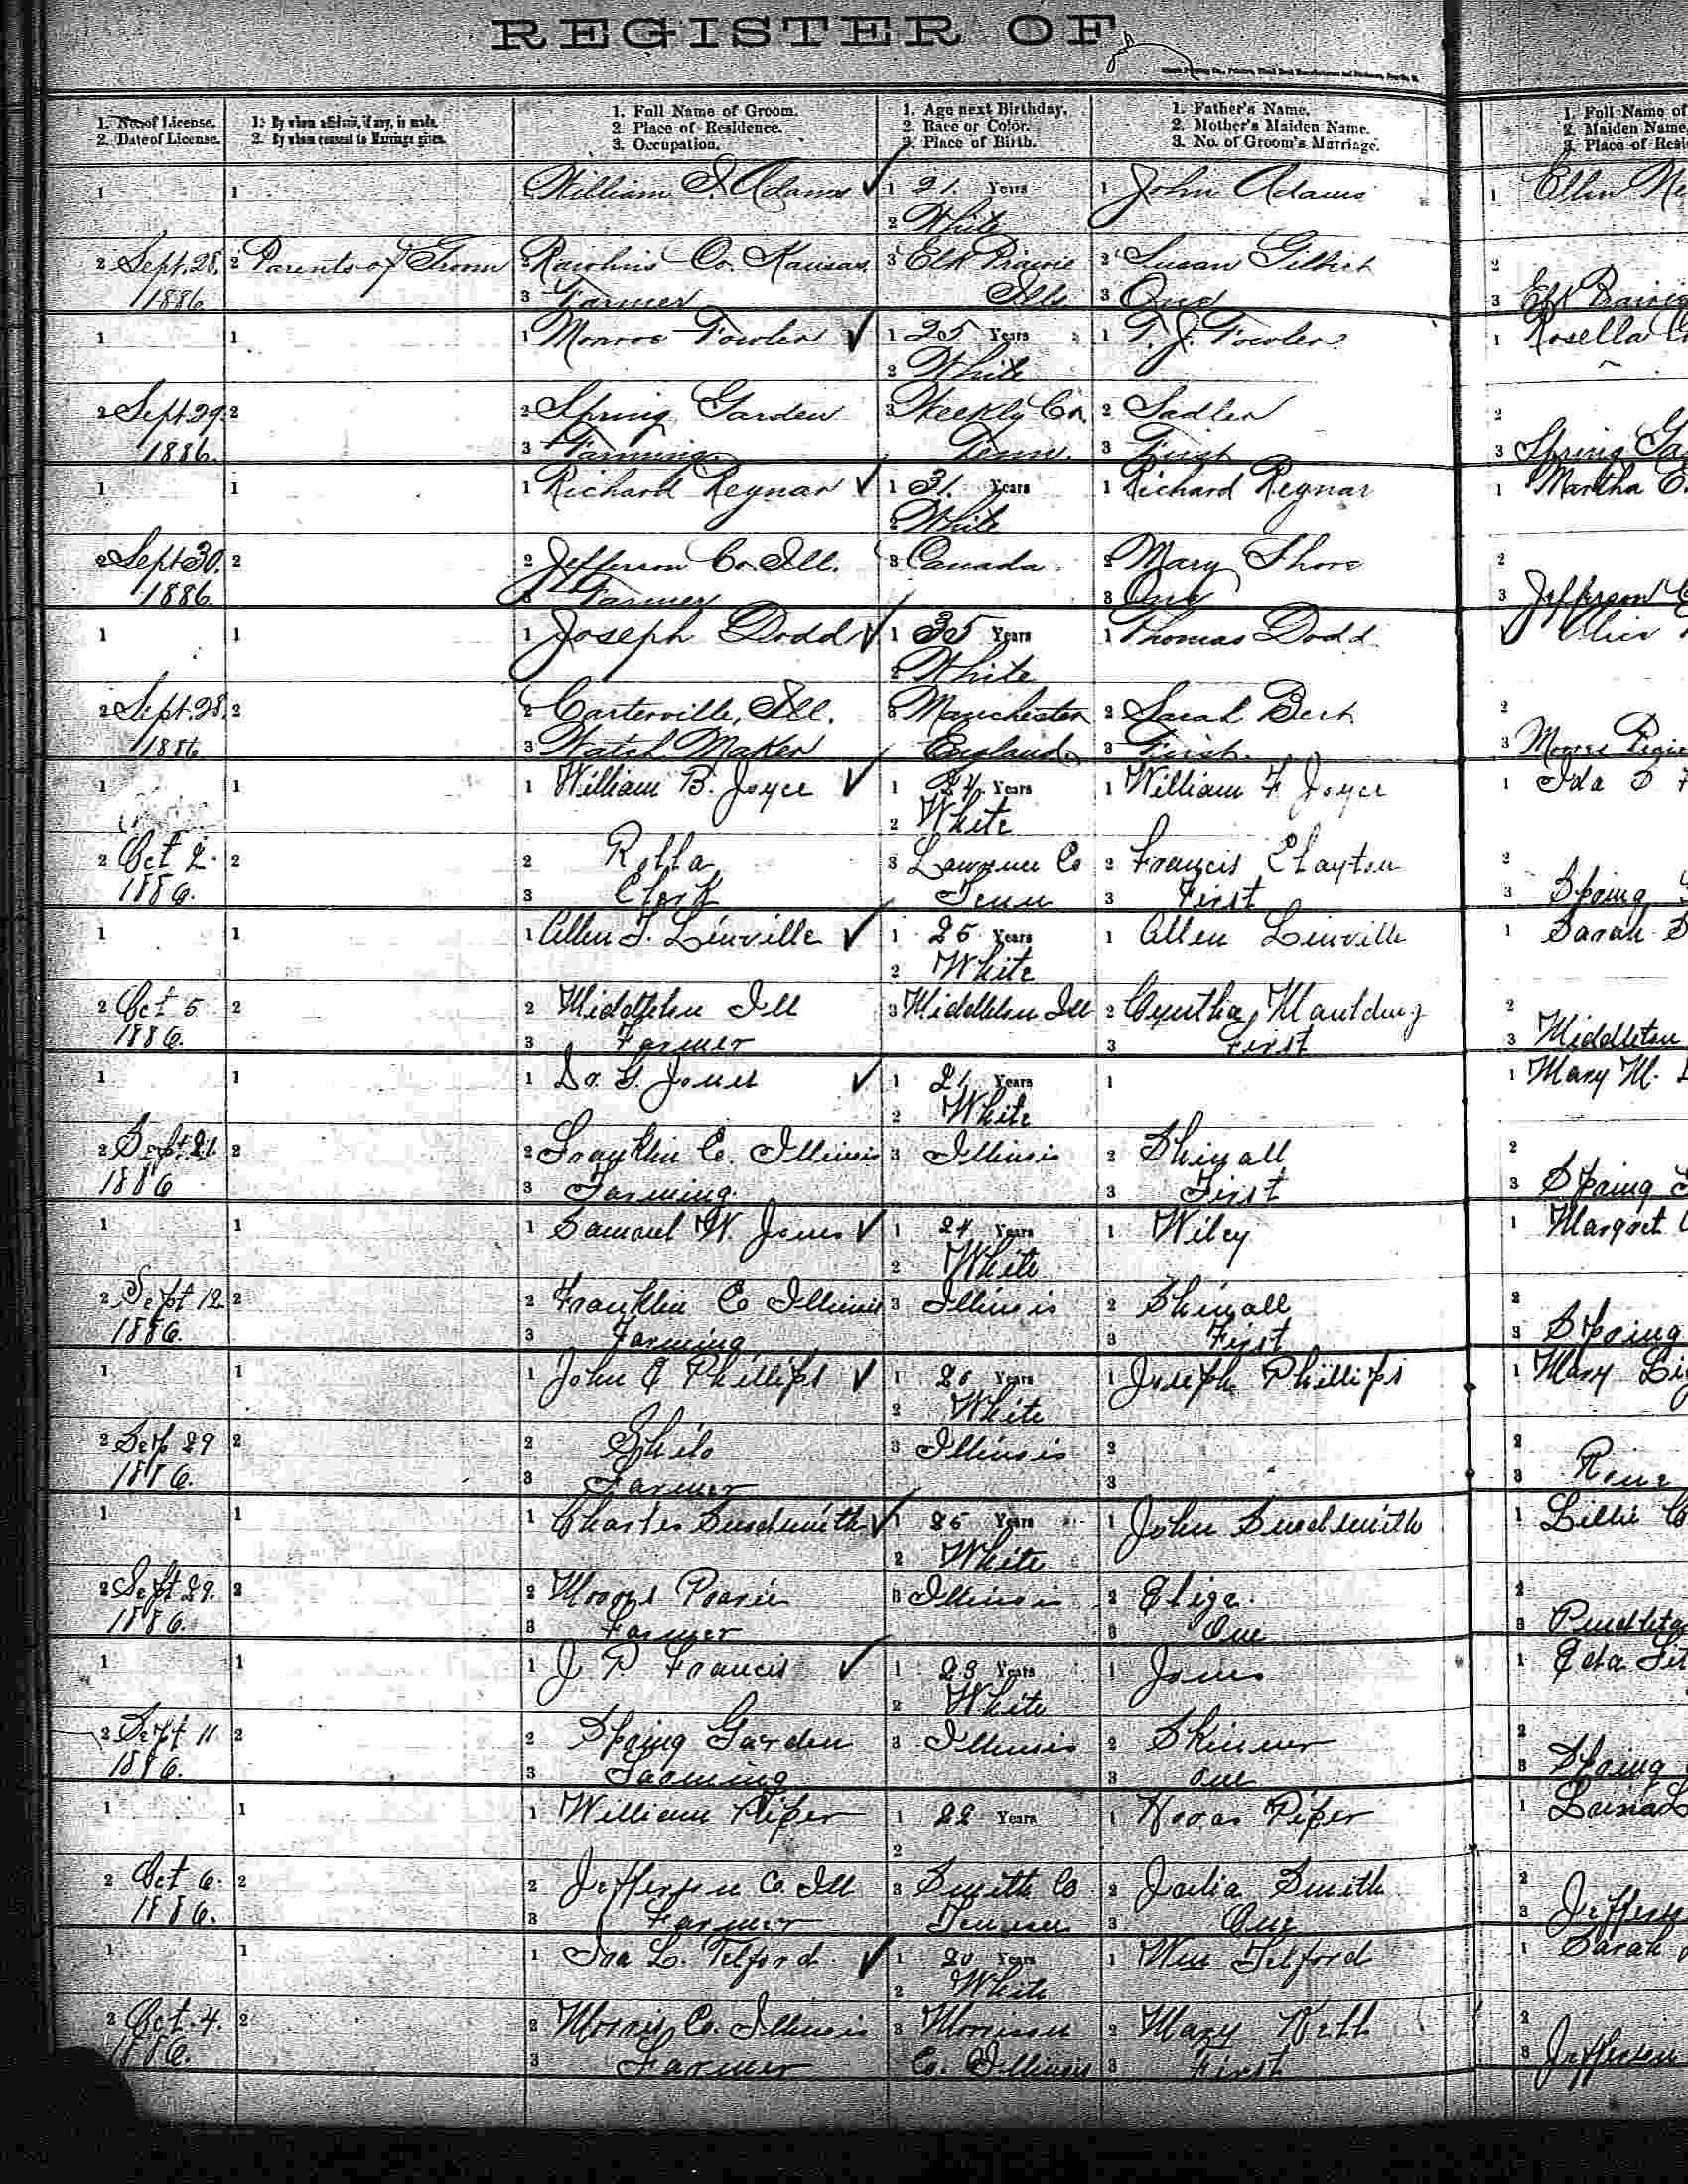 REGISTER OF
1. No. of License.
2. Date of License.
1. By whom affidavit, if any, is made.
2. By whom consent to Marriage given.
1. Full Name of Groom.
2. Place of Residence.
3. Occupation.
1. Age next Birthday.
2. Race or Color.
3. Place of Birth.
1. Father's Name.
2. Mother's Maiden Name.
3. No. of Groom's Marriage.
1. Full Name of
2. Maiden Name
3. Place of Resi
1 1 William I. Adams ✓ 1 21 Years 1 John Adams 1 Ellin
2 White
2 Sept. 28. 2 Parents of Groom 2 Co. Kansas 3 Elk Prairie 2 Susan 2
1886 3 Farmer Ills 3 One 3 Elk Prairie
1 1 1 Monroe Fowler ✓ 1 25 Years 1 T. J. Fowler 1 Rosella
2 White
2 Sept. 29. 2 2 Spring Garden 3 Weekly Co. 2 Sadler 2
1886. 3 Farming. Tenn. 3 First 3 Spring Ga
1 1 1 Richard Reynar ✓ 1 31. Years 1 Richard Reynar 1 Martha E.
2 White
2 Sept 30. 2 2 Jefferson Co. Ill. 3 Canada 2 Mary Shore 2
1886. 3 Farmer 3 One 3 Jefferson
1 1 1 Joseph Dodd ✓ 1 35 Years 1 Thomas Dodd Alice
2 White
2 Sept. 28. 2 2 Carterville, Ill. 3 Manchester 2 Sarah 2
1886 3 Watch Maker England 3 First. 3
1 1 1 William B. Joyce ✓ 1 24 Years 1 William F Joyce 1 Ida
2 White
2 Oct 2. 2 2 Rolla 3 Lawrence Co 2 Francis Clayton 2
1886. 3 Clerk Tenn 3 First 3 Spring
1 1 1 Allen T. Linville ✓ 1 25 Years 1 Allen Linville 1 Sarah
2 White
2 Oct 5 2 2 Middleton Ill 3 Middleton Ill 2 Cyntha Maulding 2
1886. 3 Farmer 3 First 3 Middleton
1 1 1 Jones ✓ 1 21 Years 1 1 Mary M.
2 White
2 Sept 21 2 2 Franklin Co. Illinois 3 Illinois 2 2
1886 3 Farming. 3 First 3 Spring
1 1 1 Samuel W. Jones ✓ 1 24 Years 1 Wiley 1 Margret
2 White
2 Sept 12 2 2 Franklin Co Illinois 3 Illinois 2 2
1886. 3 Farming 3 First 3 Spring
1 1 1 John Phillips ✓ 1 26 Years 1 Joseph Phillips 1 Mary
2 White
2 Sept 29 2 2 Shilo 3 Illinois 2 2
1886. 3 Farmer 3 3 Rome
1 1 1 Charles ✓ 1 25 Years 1 John 1 Lillie
2 White
2 Sept 29. 2 2 3 Illinois 2 Eliza 2
1886. 3 Farmer 3 One 3
1 1 1 J. P. Francis ✓ 1 23 Years 1 Jones 1
2 White
2 Sept 11 2 2 Spring Garden 3 Illinois 2 Skinner 2
1886. 3 Farming 3 One 3 Spring
1 1 1 William Piper 1 22 Years 1 Piper 1
2
2 Oct 6. 2 2 Jefferson Co Ill 3 Smith Co 2 Smith 2
1886. 3 Farmer 3 One 3 Jefferso
1 1 1 Ira L. Telford ✓ 1 20 Years 1 Wm Telford 1 Sarah
2 White
2 Oct. 4. 2 2 Co. Illinois 3 2 Mary 2
1886. 3 Farmer Co. Illinois 3 First 3 Jefferson